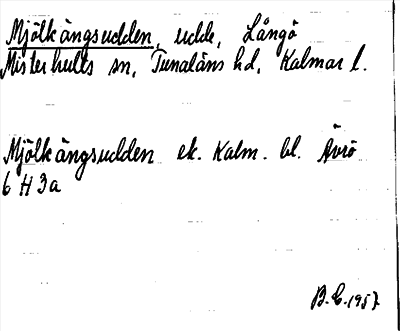 Mjölkängsudden, udde, Långö
Misterhults sn, Tunaläns hd, Kalmar l.
Mjölkängsudden ek. Kalm. bl. Ävrö
6 H 3a
B.E. 1957